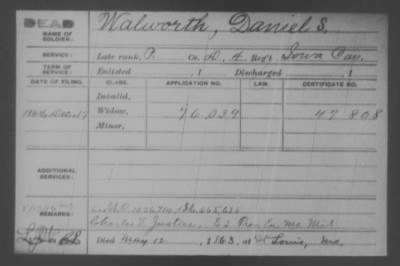 DEAD
NAME OF SOLDIER:
Walworth, Daniel S.
SERVICE:
Late rank, P. Co. D, 4 Reg't Iowa Cav.
TERM OF SERVICE:
Enlisted , 1 Discharged , 1
DATE OF FILING. CLASS. APPLICATION NO. LAW. CERTIFICATE NO.
Invalid,
1864, Dec. 17 Widow, 76.039 47 808
Minor,
ADDITIONAL SERVICES:
REMARKS:
Charles E Justice, Co. Mo. Mil.
Died Aug. 12, 1863, at St Louis, Mo.